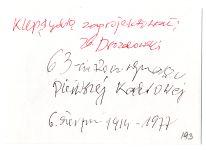 Klepsydrę zaprojektował
Zb Drozdowski
63-cia Rocznica Wymarszu
Pierwszej Kadrowej
6. Sierpn 1914 - 1977
193